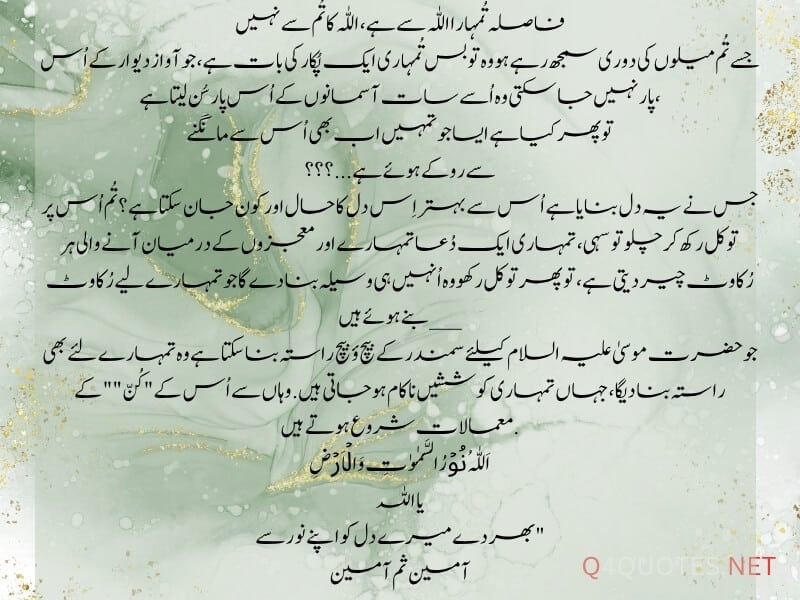 فاصلہ تُمہارا اللہ سے ہے، اللہ کا تُم سے نہیں
جسے تُم میلوں کی دوری سمجھ رہے ہو وہ تو بس تُمہاری ایک پُکار کی بات ہے، جو آواز دیوار کے اُس
پار نہیں جا سکتی وہ اُسے سات آسمانوں کے اُس پار سُن لیتا ہے،
تو پھر کیا ہے ایسا جو تمہیں اب بھی اُس سے مانگنے
سے روکے ہوئے ہے...؟؟؟
جس نے یہ دل بنایا ہے اُس سے بہتر اِس دل کا حال اور کون جان سکتا ہے؟ تُم اُس پر
توکل رکھ کر چلو تو سہی، تمہاری ایک دُعا تمہارے اور معجزوں کے درمیان آنے والی ہر
رُکاوٹ چیر دیتی ہے، تو پھر توکل رکھو وہ اُنہیں ہی وسیلہ بنا دے گا جو تمہارے لیے رُکاوٹ
بنے ہوئے ہیں___
جو حضرت موسیٰ علیہ السلام کیلئے سمندر کے بیچ و بیچ راستہ بنا سکتا ہے وہ تمہارے لئے بھی
راستہ بنا دیگا، جہاں تمہاری کوششیں ناکام ہو جاتی ہیں. وہاں سے اُس کے "کُنّ"" کے
معمالات شروع ہوتے ہیں.
اَللّٰہُ نُوْرُ السَّمٰوٰتِ وَالْاَرْضِ
یا اللہ
"بھر دے میرے دل کو اپنے نور سے
آمین ثم آمین
Q4QUOTES.NET